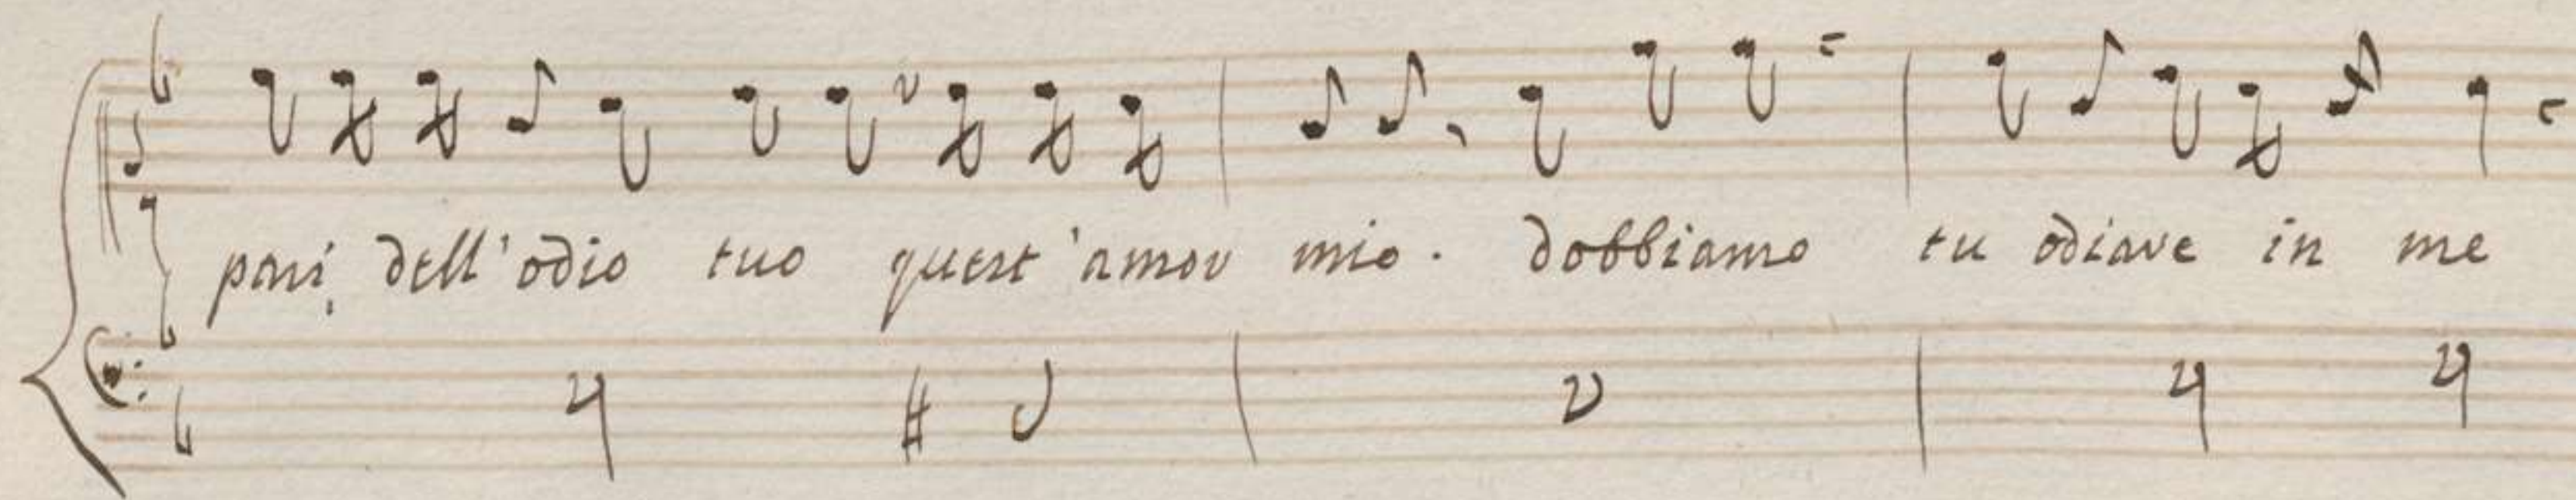 pari, dell'odio tuo quest'amor mio. dobbiamo tu odiare in me